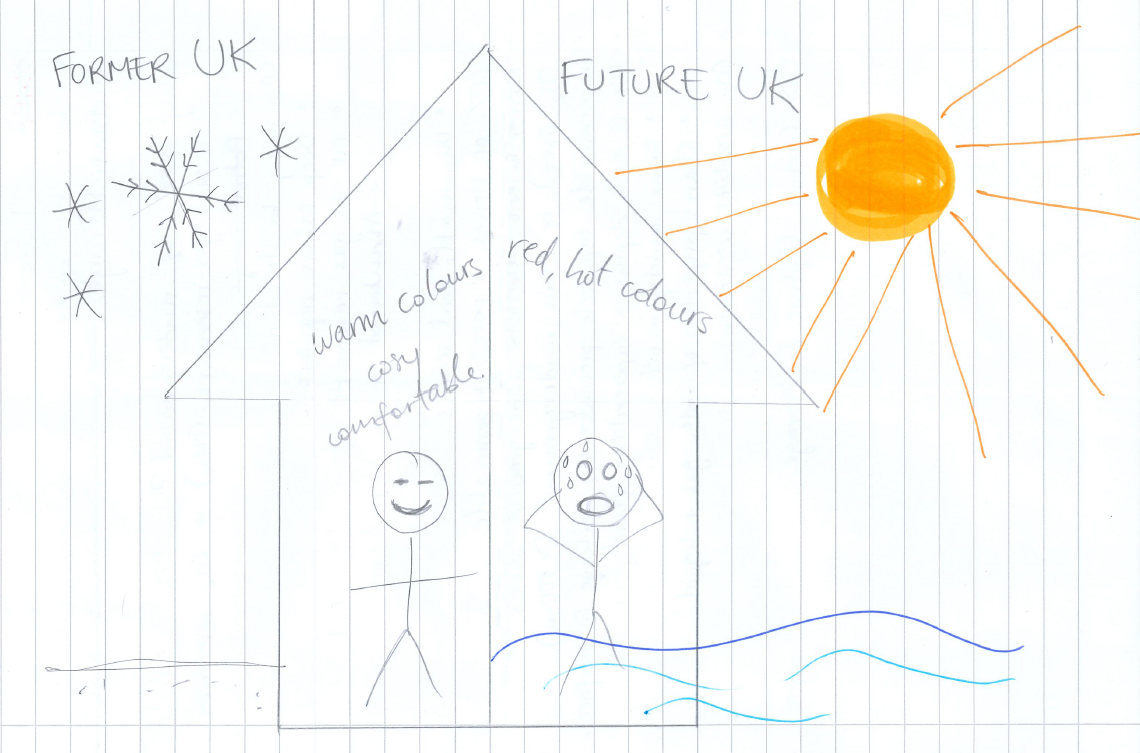 FORMER UK
FUTURE UK
warm colours
cosy
comfortable.
red, hot colours